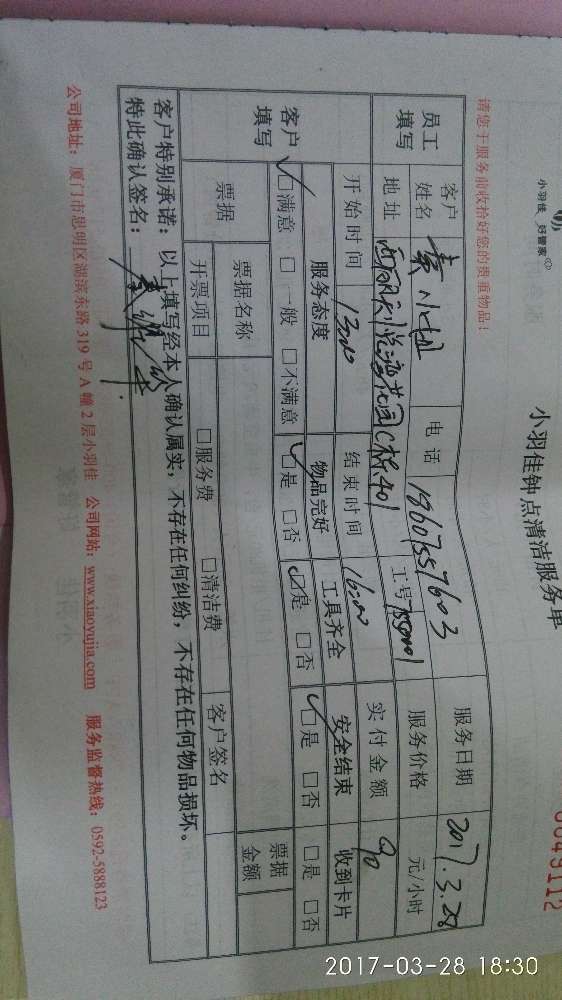 小羽佳 好管家
小羽佳钟点清洁服务单
0049112
请您于服务前收拾好您的贵重物品！
员工填写 客户姓名 黄小姐 电话 18607557603 服务日期 2017.3.28
地址 花园C栋401 工号 服务价格 元/小时
开始时间 13:00 结束时间 16:00 实付金额 90
客户填写 服务态度 物品完好 工具齐全 安全结束 收到卡片
☑满意 □一般 □不满意 ☑是 □否 ☑是 □否 ☑是 □否 □是 □否
票据 票据名称 客户签名 票据金额
开票项目 □服务费 □清洁费
客户特别承诺：以上填写经本人确认属实，不存在任何纠纷，不存在任何物品损坏。
特此确认签名：
公司地址：厦门市思明区湖滨东路319号A幢2层小羽佳 公司网站：www.xiaoyujia.com 服务监督热线：0592-5888123
2017-03-28 18:30